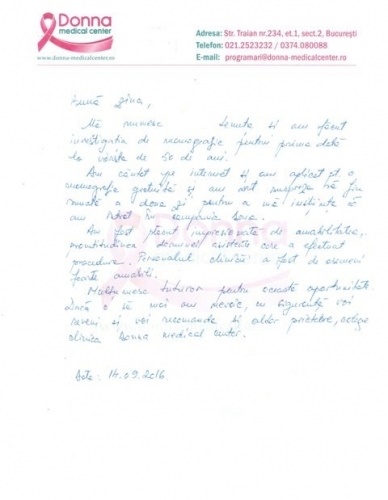 Donna
medical center
www.donna-medicalcenter.ro
Adresa: Str. Traian nr.234, et.1, sect.2, București
Telefon: 021.2523232 / 0374.080088
E-mail: programari@donna-medicalcenter.ro
Bună ziua,
Mă numesc Lenuța și am făcut
investigația de mamografie pentru prima dată
la vârsta de 50 de ani.
Am căutat pe internet și am aplicat pt o
mamografie gratuită și am avut surpriza să fiu
sunată a doua zi pentru a mă înștiința că
am intrat în campania
Am fost plăcut impresionată de amabilitatea,
promtitudinea domnului asistent care a efectuat
procedura. Personalul clinicii a fost de asemeni
foarte amabil.
Mulțumesc tuturor pentru această oportunitate.
Dacă o să mai am nevoie, cu siguranță voi
reveni și voi recomanda și altor prietene,
clinica Donna medical center.
14.09.2016